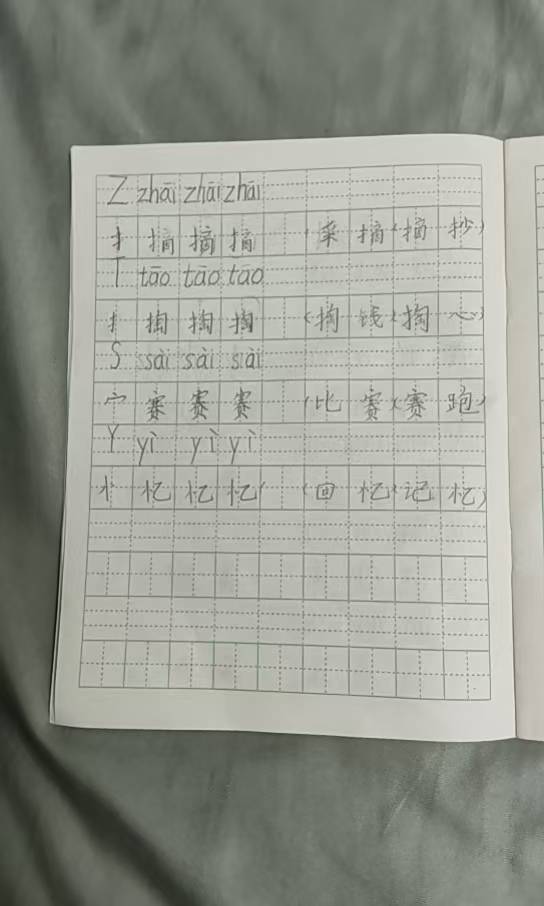 Z zhāi zhāi zhāi
扌 摘 摘 摘 (采 摘)(摘 抄)
T tāo tāo tāo
扌 掏 掏 掏 (掏 钱)(掏 心)
S sài sài sài
宀 赛 赛 赛 (比 赛)(赛 跑)
Y yì yì yì
忄 忆 忆 忆 (回 忆)(记 忆)